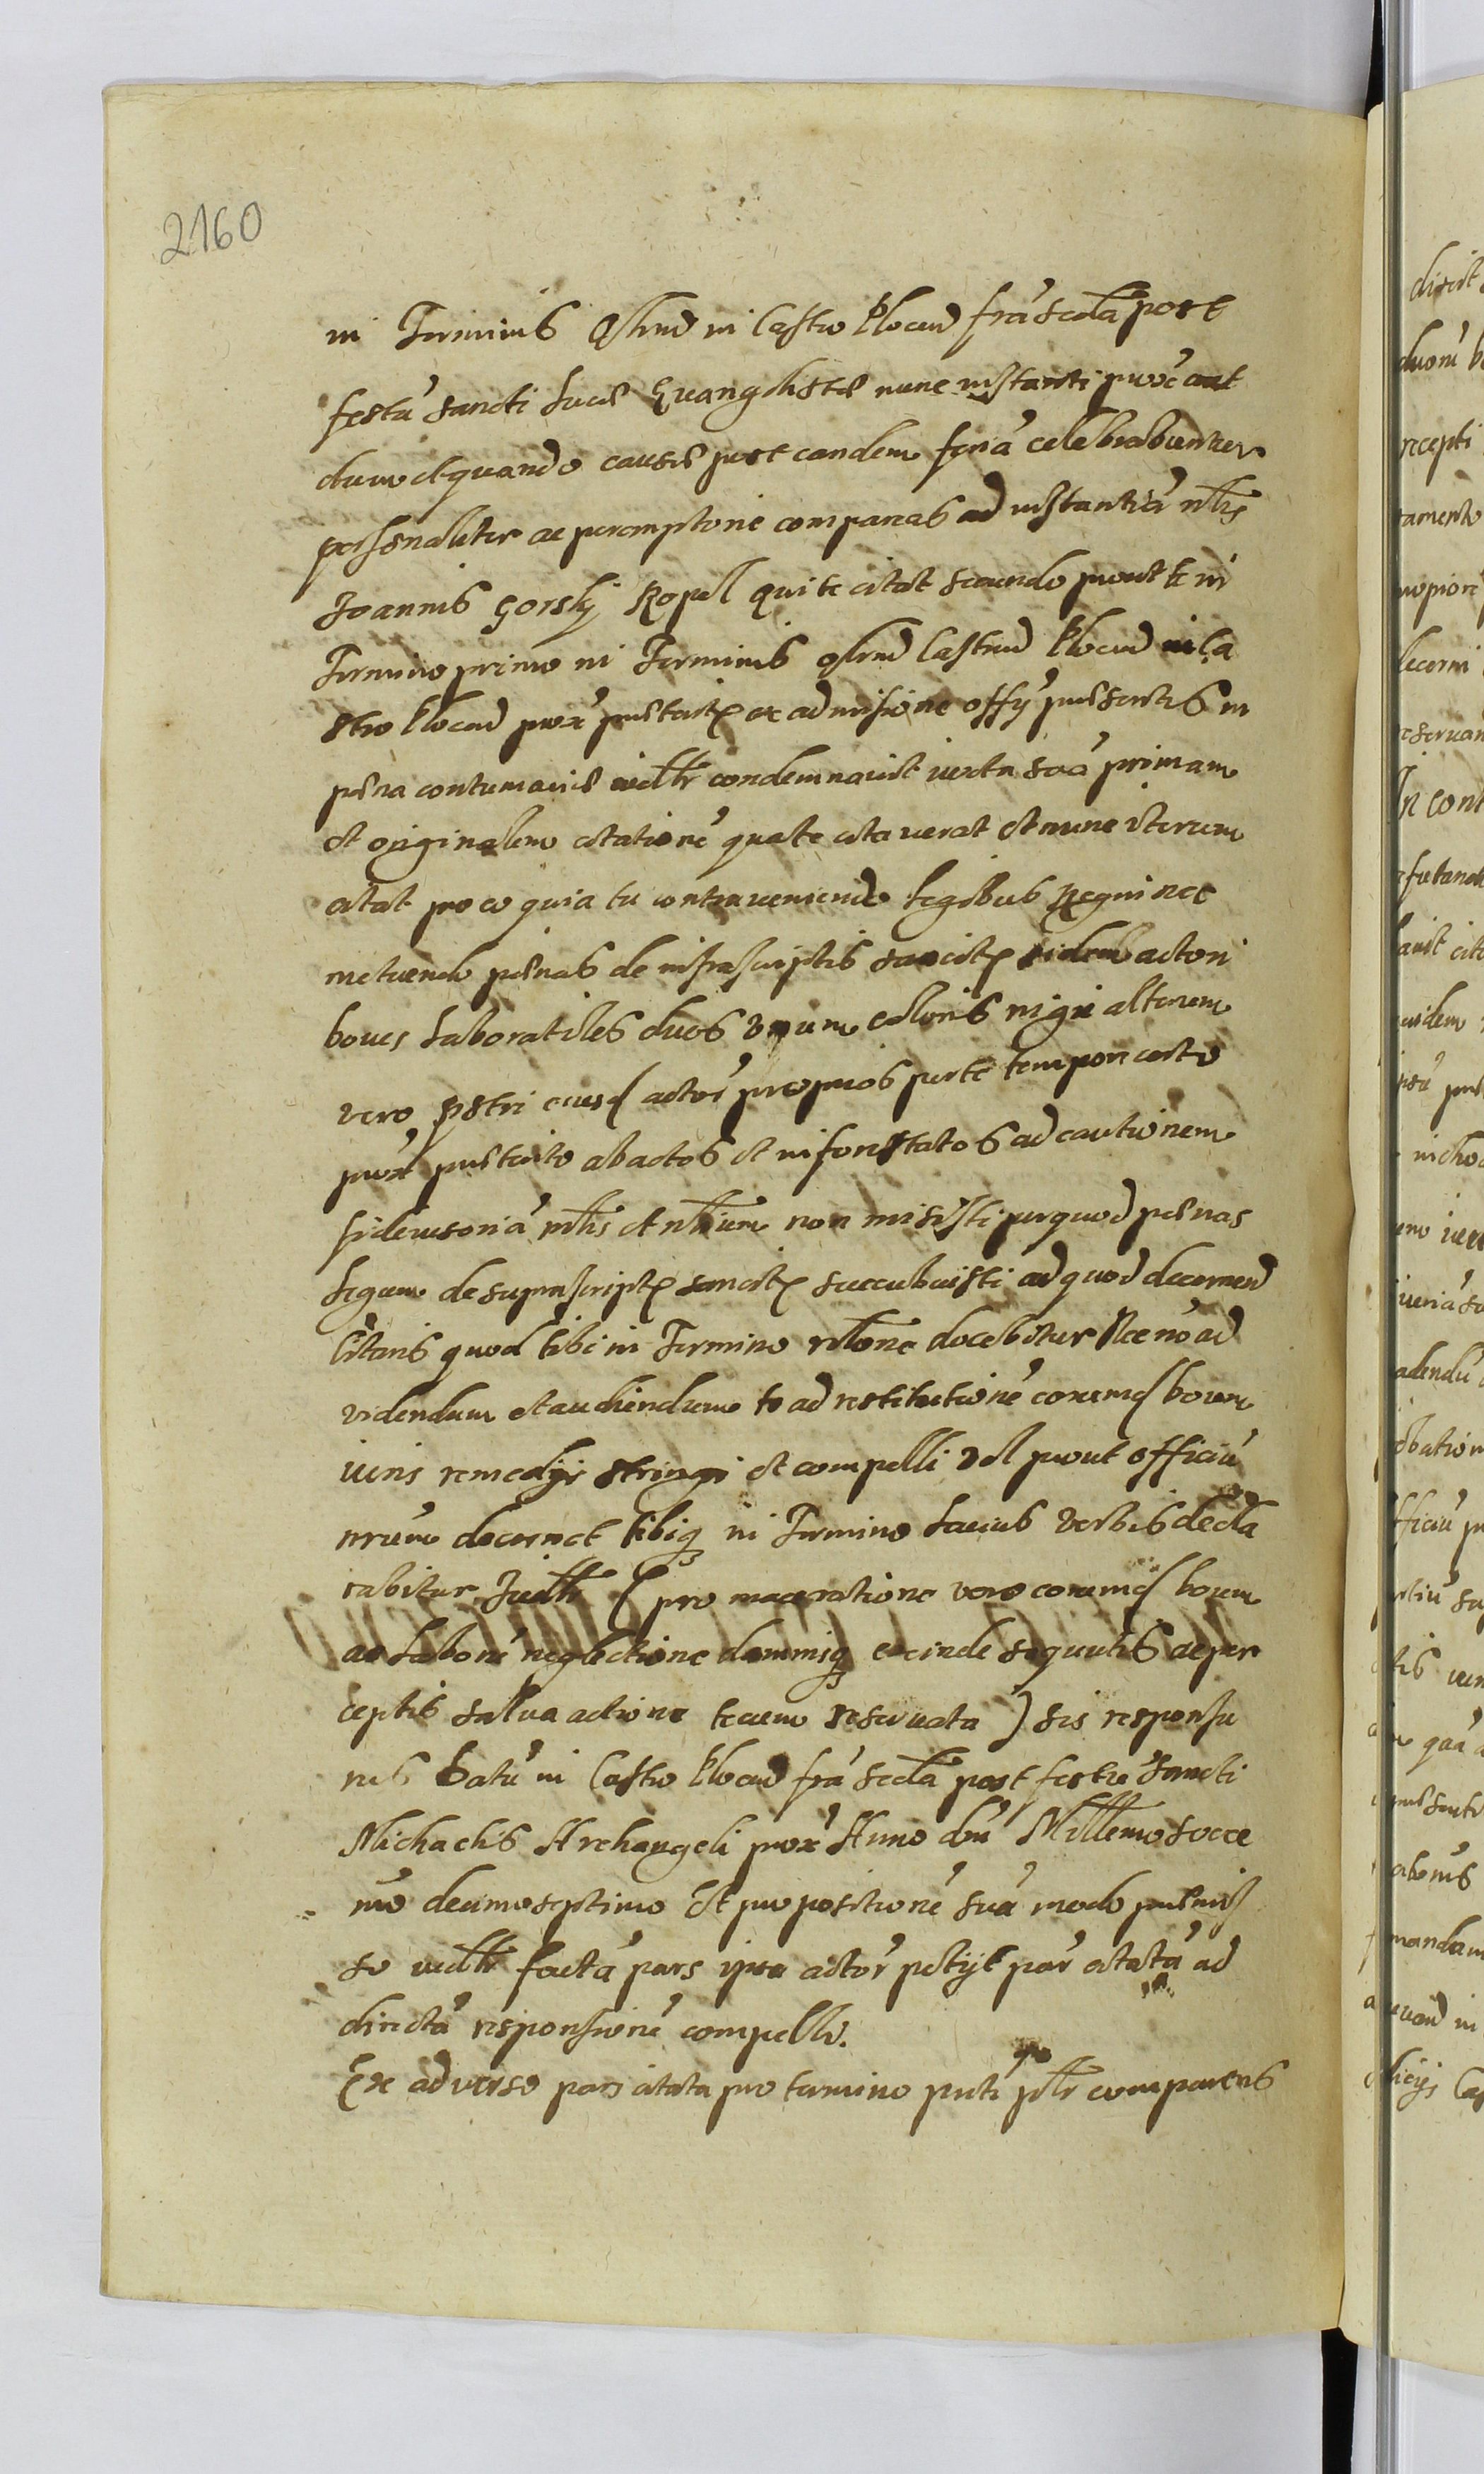 2160
in Terminis qsrnd in Castro Plocen fra scda post
festu sancti Lucae Evangelistae nunc instanti prox aut
dum et quando causae post eandem feria celebrabuntur
personaliter ac peremptorie compareas ad instantia nblis
Joannis Gorskij Ropel qui te citat secundo prout te in
Termino primo in Terminis qsrnd Castren Plocen in Ca
stro Plocen prox praeterit ex admissione offy praesentis in
paena contumaciae iudltr condemnavit iuxta sua primam
et originalem citatione qua te citaverat et nunc iterum
citat pro eo quia tu contraveniendo legibus Regni nec
metuendo paenas de infrascriptis sancitis eidem actori
boves laboratiles duos unum coloris nigri alterum
vero pstri eiusd actor proprios per te tempore certo
prox praeterito abactos et inforistatos ad cautionem
fideiusoria nblis et nblium non misisti per quod paenas
legum de suprascriptis sancitis succubuisti ad quod decernend
citaris quod tibi in Termino rlone docebitur Nec no ad
videndum et audiendum te ad restitutione eorumd boum
iuris remedijs stringi et compelli vel prout officiu
nrum decernet tibiq in Termino Lacius verbis decla
rabitur Judltr (pro maceratione vero eorumd boum
ac labori neglectione damnisq exinde sequutis ac per
ceptis salva actione tecum reservata) sis responsu
rus Datu in Castro Plocen fra scda post festu Sancti
Michaelis Archangeli prox Anno dni Millemo sexce
mo decimoseptimo Et propositione sua modo praemis
so iudltr facta pars ipsa actor petijt par citata ad
directa responsione compelli.
Ex adverso pars citata pro termino pnti pltr comparens